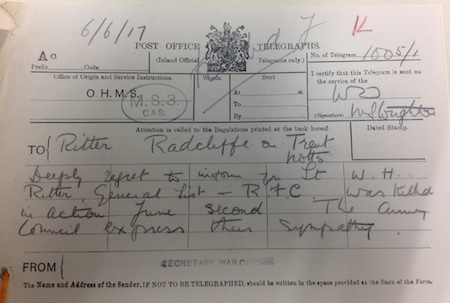 6/6/17
K
POST OFFICE TELEGRAPHS.
A
(Inland Official Telegrams only.)
No. of Telegram 1005/1
Prefix Code
Office of Origin and Service Instructions.
Words
Sent
I certify that this Telegram is sent on
the service of the
O. H. M. S.
M.S.3.
CAS.
At M.
To
By
WO
(Signature)
Attention is called to the Regulations printed at the back hereof
Dated Stamp.
TO Ritter Radcliffe on Trent
Notts
Deeply regret to inform you Lt W. H.
Ritter, General List - R F C was killed
in action June second The Army
Council express their sympathy.
SECRETARY WAR OFFICE
FROM
The Name and Address of the Sender, IF NOT TO BE TELEGRAPHED, should be written in the space provided at the Back of the Form.